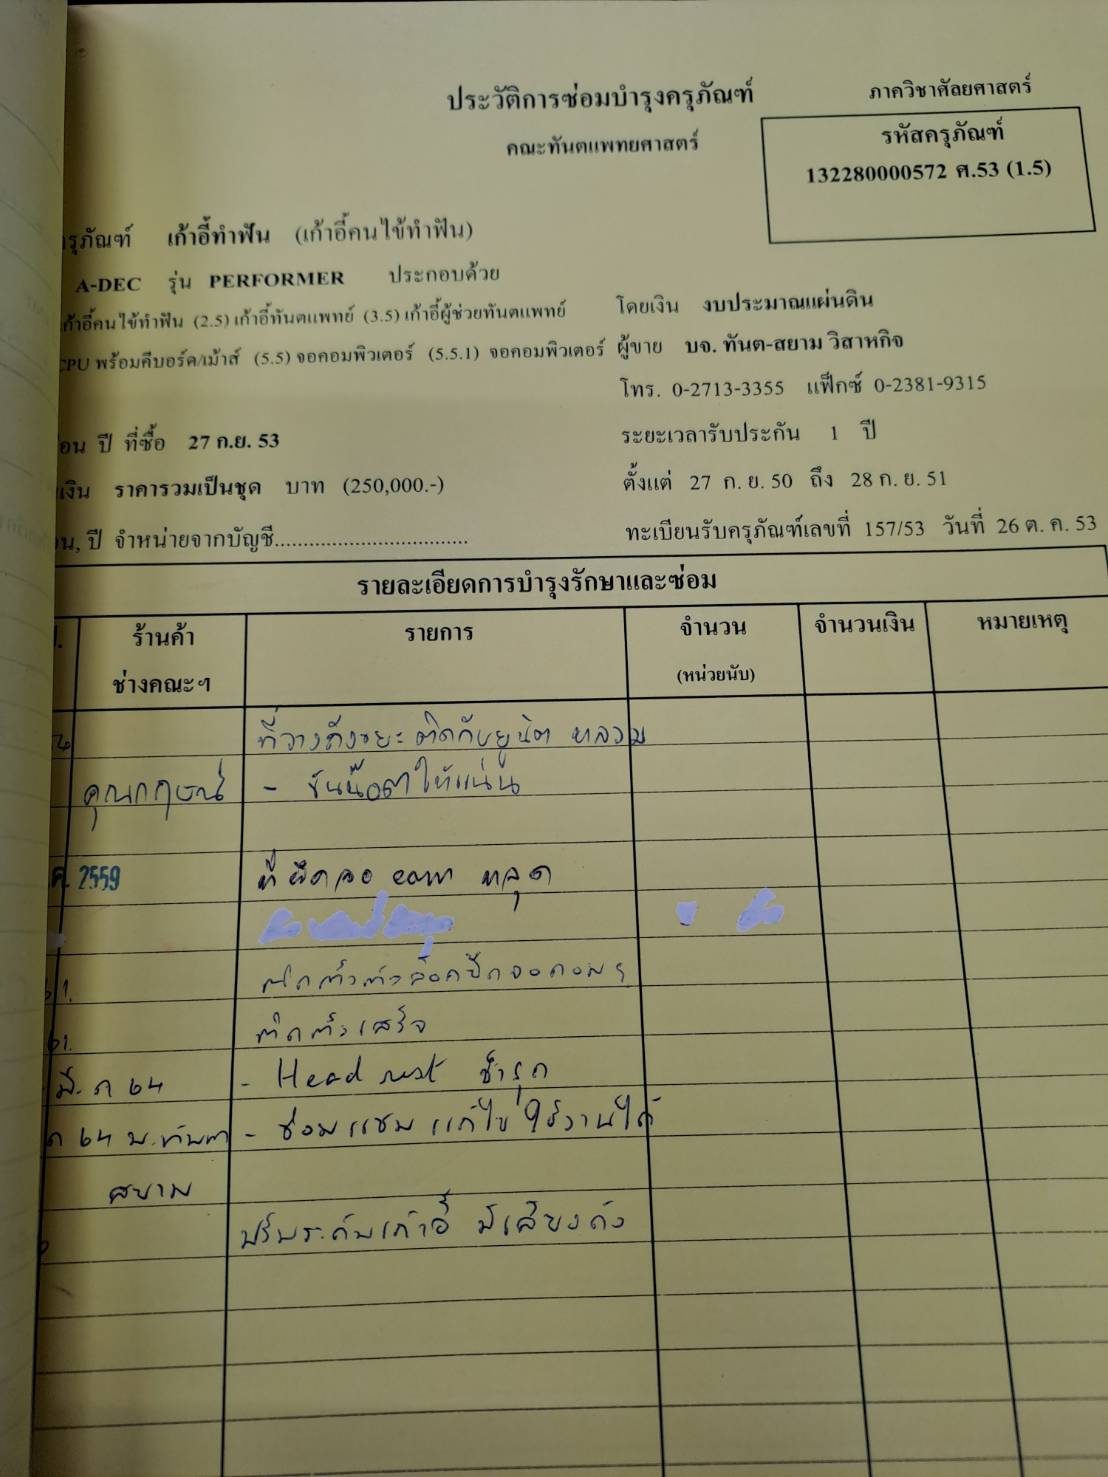 ประวัติการซ่อมบำรุงครุภัณฑ์
ภาควิชาศัลยศาสตร์
คณะทันตแพทยศาสตร์
รหัสครุภัณฑ์
132280000572 ศ.53 (1.5)
รุภัณฑ์ เก้าอี้ทำฟัน (เก้าอี้คนไข้ทำฟัน)
A-DEC รุ่น PERFORMER ประกอบด้วย
ก้าอี้คนไข้ทำฟัน (2.5) เก้าอี้ทันตแพทย์ (3.5) เก้าอี้ผู้ช่วยทันตแพทย์ โดยเงิน งบประมาณแผ่นดิน
CPU พร้อมคีบอร์ด/เม้าส์ (5.5) จอคอมพิวเตอร์ (5.5.1) จอคอมพิวเตอร์ ผู้ขาย บจ. ทันต-สยาม วิสาหกิจ
โทร. 0-2713-3355 แฟ็กซ์ 0-2381-9315
ปี ที่ซื้อ 27 ก.ย. 53 ระยะเวลารับประกัน 1 ปี
เงิน ราคารวมเป็นชุด บาท (250,000.-) ตั้งแต่ 27 ก.ย. 50 ถึง 28 ก.ย. 51
น, ปี จำหน่ายจากบัญชี.................................. ทะเบียนรับครุภัณฑ์เลขที่ 157/53 วันที่ 26 ต.ค. 53
รายละเอียดการบำรุงรักษาและซ่อม
ร้านค้า รายการ จำนวน จำนวนเงิน หมายเหตุ
ช่างคณะฯ (หน่วยนับ)
ที่วางถังขยะติดกับยูนิต หลวม
คุณกฤษณ์ - ขันน๊อตให้แน่น
ค. 2559 ที่ยึดจอ คอม หลุด
ติดตั้งตัวล็อคปีกจอคอมฯ
ติดตั้งเสร็จ
มี.ค 64 - Head rest ชำรุด
ค 64 บ.ทันต - ซ่อมแซมแก้ไข ใช้งานได้
สยาม
ปรับระดับเก้าอี้ มีเสียงดัง